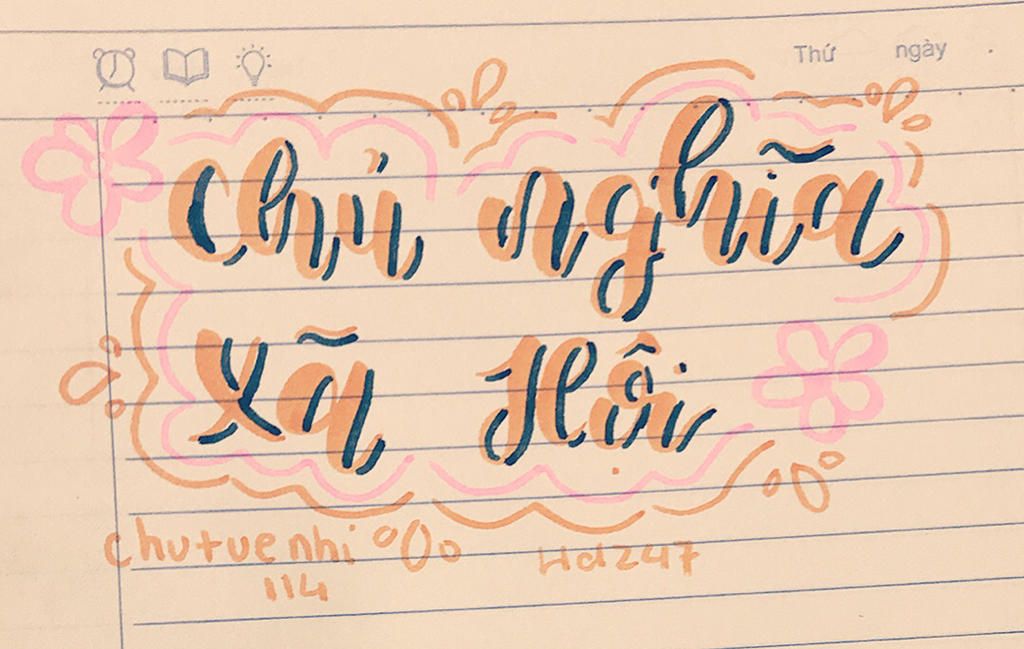 Thứ ngày .
Chủ nghĩa
Xã Hội
chutuenhi
114
Hd247